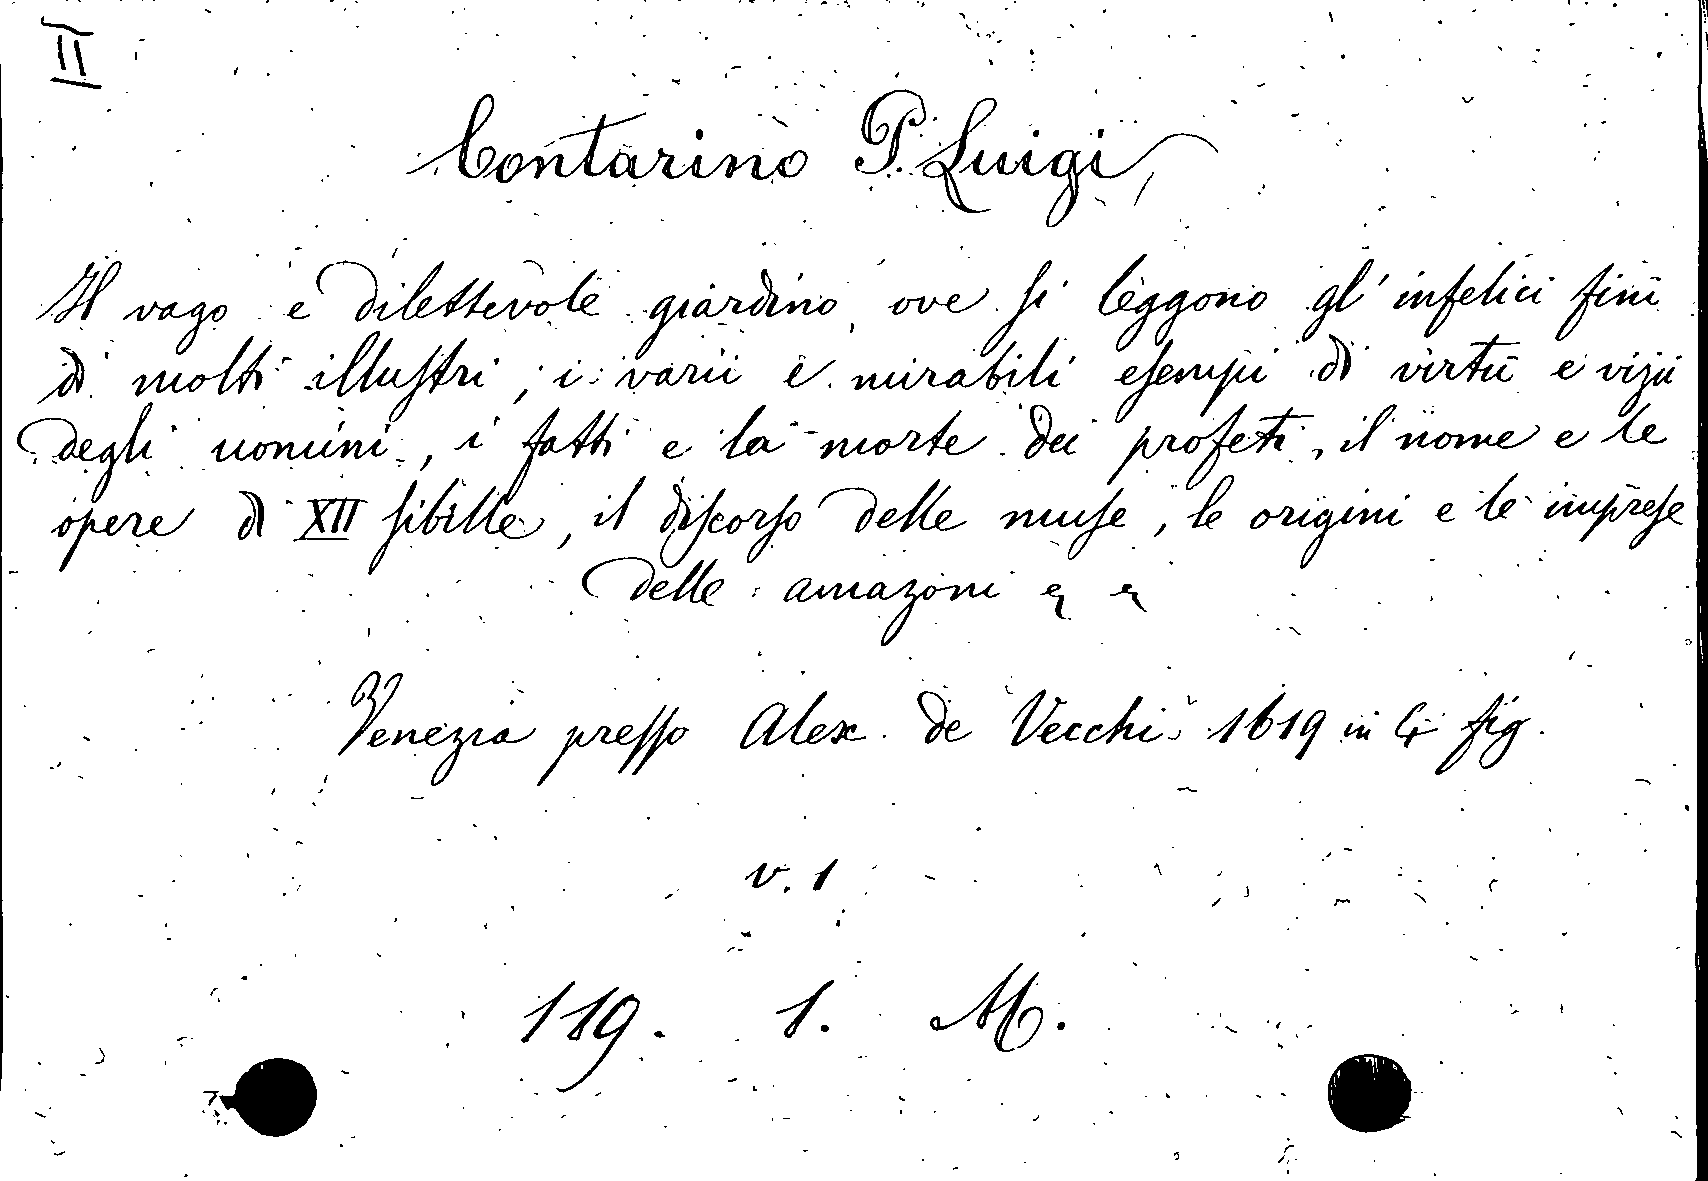 II
Contarino P. Luigi,
Il vago e dilettevole giardino, ove si leggono gl' infelici fini
di molti illustri, i varii e mirabili esempi di virtù e vizii
degli uomini, i fatti e la morte dei profeti, il nome e le
opere di XII sibille, il discorso delle muse, le origini e le imprese
delle amazoni
Venezia presso Alex. de Vecchi 1619 in 4 fig.
v. 1
119. 1. M.